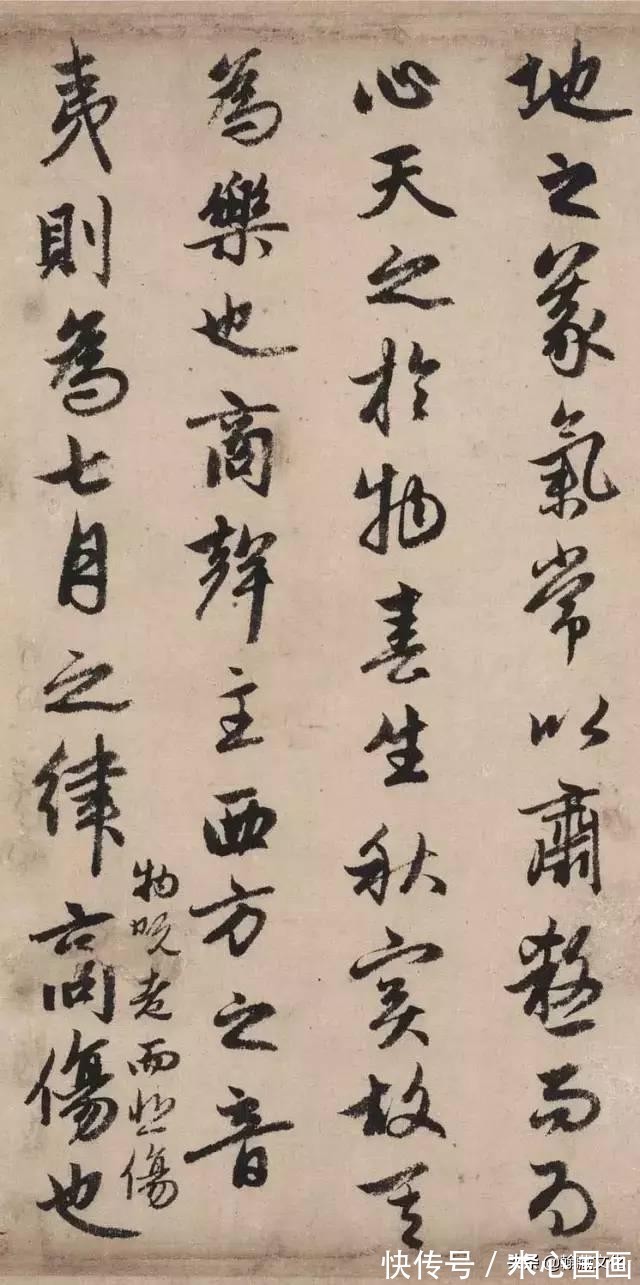 地之義氣常以肅殺而為
心天之於物春生秋實故其
為樂也商聲主西方之音
夷則為七月之律商傷也
物既老而悲傷
快传号/心国画